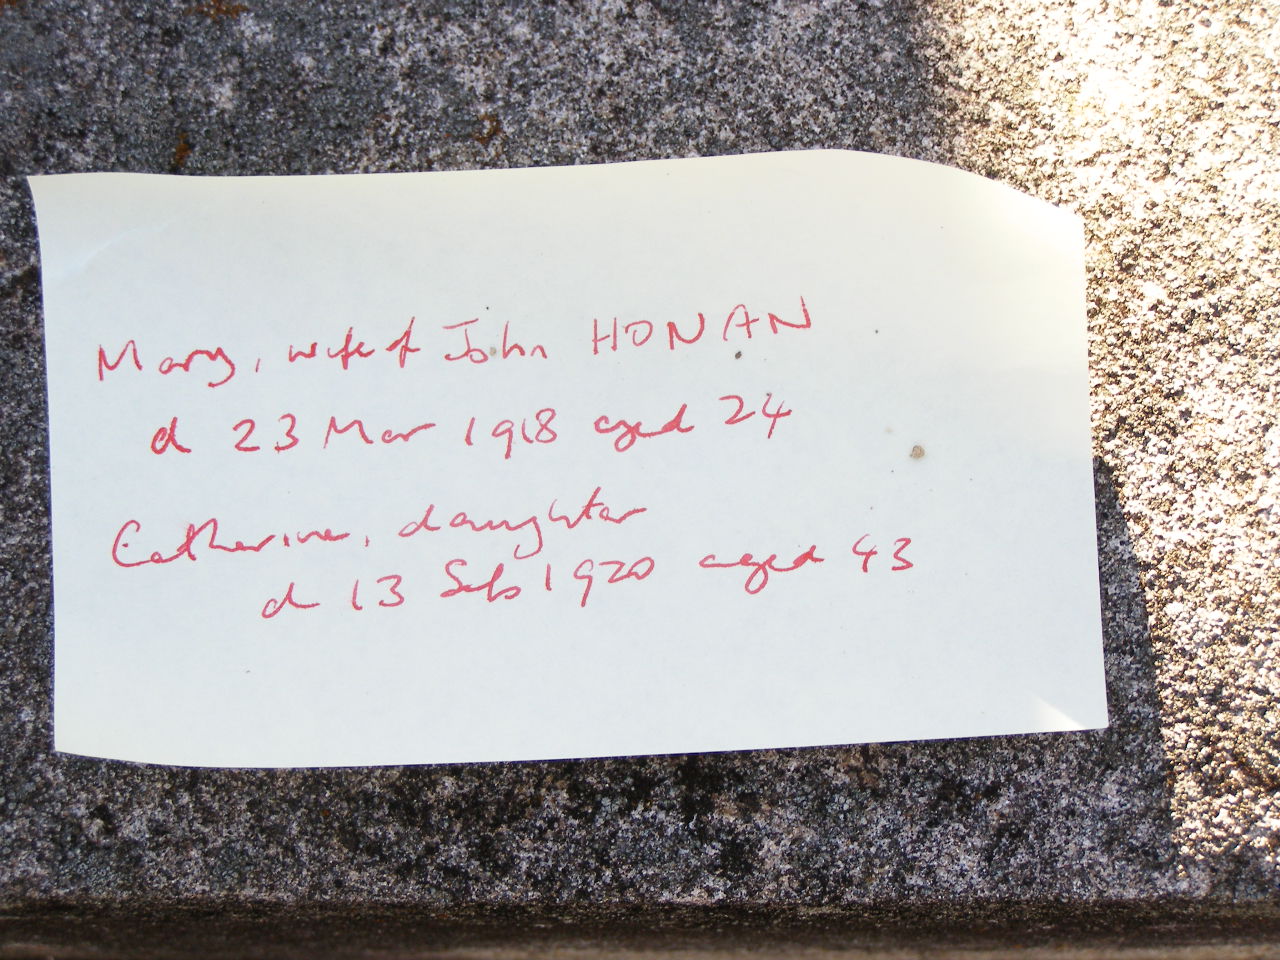 Mary, wife of John HONAN
d 23 Mar 1918 aged 24
Catherine, daughter
d 13 Feb 1920 aged 43